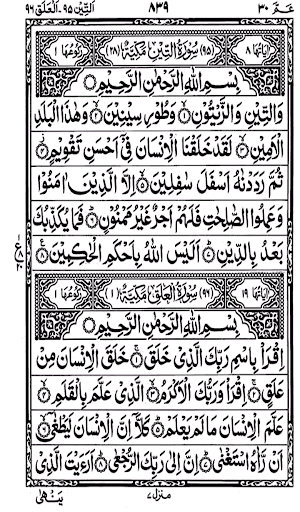 التين ۹۵ ـ العلق ۹۶ ۸۳۹ عم ۳۰
اٰیاتها ۸ (۹۵) سُوْرَةُ التِّيْنِ مَكِّيَّةٌ (۲۸) رکوعها ۱
بِسْمِ اللّٰهِ الرَّحْمٰنِ الرَّحِيْمِ
وَالتِّيْنِ وَالزَّيْتُوْنِ ۱ وَطُوْرِ سِيْنِيْنَ ۲ وَهٰذَا الْبَلَدِ
الْاَمِيْنِ ۳ لَقَدْ خَلَقْنَا الْاِنْسَانَ فِيْۤ اَحْسَنِ تَقْوِيْمٍ ۴
ثُمَّ رَدَدْنٰهُ اَسْفَلَ سٰفِلِيْنَ ۵ اِلَّا الَّذِيْنَ اٰمَنُوْا
وَعَمِلُوا الصّٰلِحٰتِ فَلَهُمْ اَجْرٌ غَيْرُ مَمْنُوْنٍ ۶ فَمَا يُكَذِّبُكَ
بَعْدُ بِالدِّيْنِ ۷ اَلَيْسَ اللّٰهُ بِاَحْكَمِ الْحٰكِمِيْنَ ۸
اٰیاتها ۱۹ (۹۶) سُوْرَةُ الْعَلَقِ مَكِّيَّةٌ (۱) رکوعها ۱
بِسْمِ اللّٰهِ الرَّحْمٰنِ الرَّحِيْمِ
اِقْرَاْ بِاسْمِ رَبِّكَ الَّذِيْ خَلَقَ ۱ خَلَقَ الْاِنْسَانَ مِنْ
عَلَقٍ ۲ اِقْرَاْ وَرَبُّكَ الْاَكْرَمُ ۳ الَّذِيْ عَلَّمَ بِالْقَلَمِ ۴
عَلَّمَ الْاِنْسَانَ مَا لَمْ يَعْلَمْ ۵ كَلَّاۤ اِنَّ الْاِنْسَانَ لَيَطْغٰۤى ۶
اَنْ رَّاٰهُ اسْتَغْنٰى ۷ اِنَّ اِلٰى رَبِّكَ الرُّجْعٰى ۸ اَرَءَيْتَ الَّذِيْ
منزل ۷ يَنْهٰى